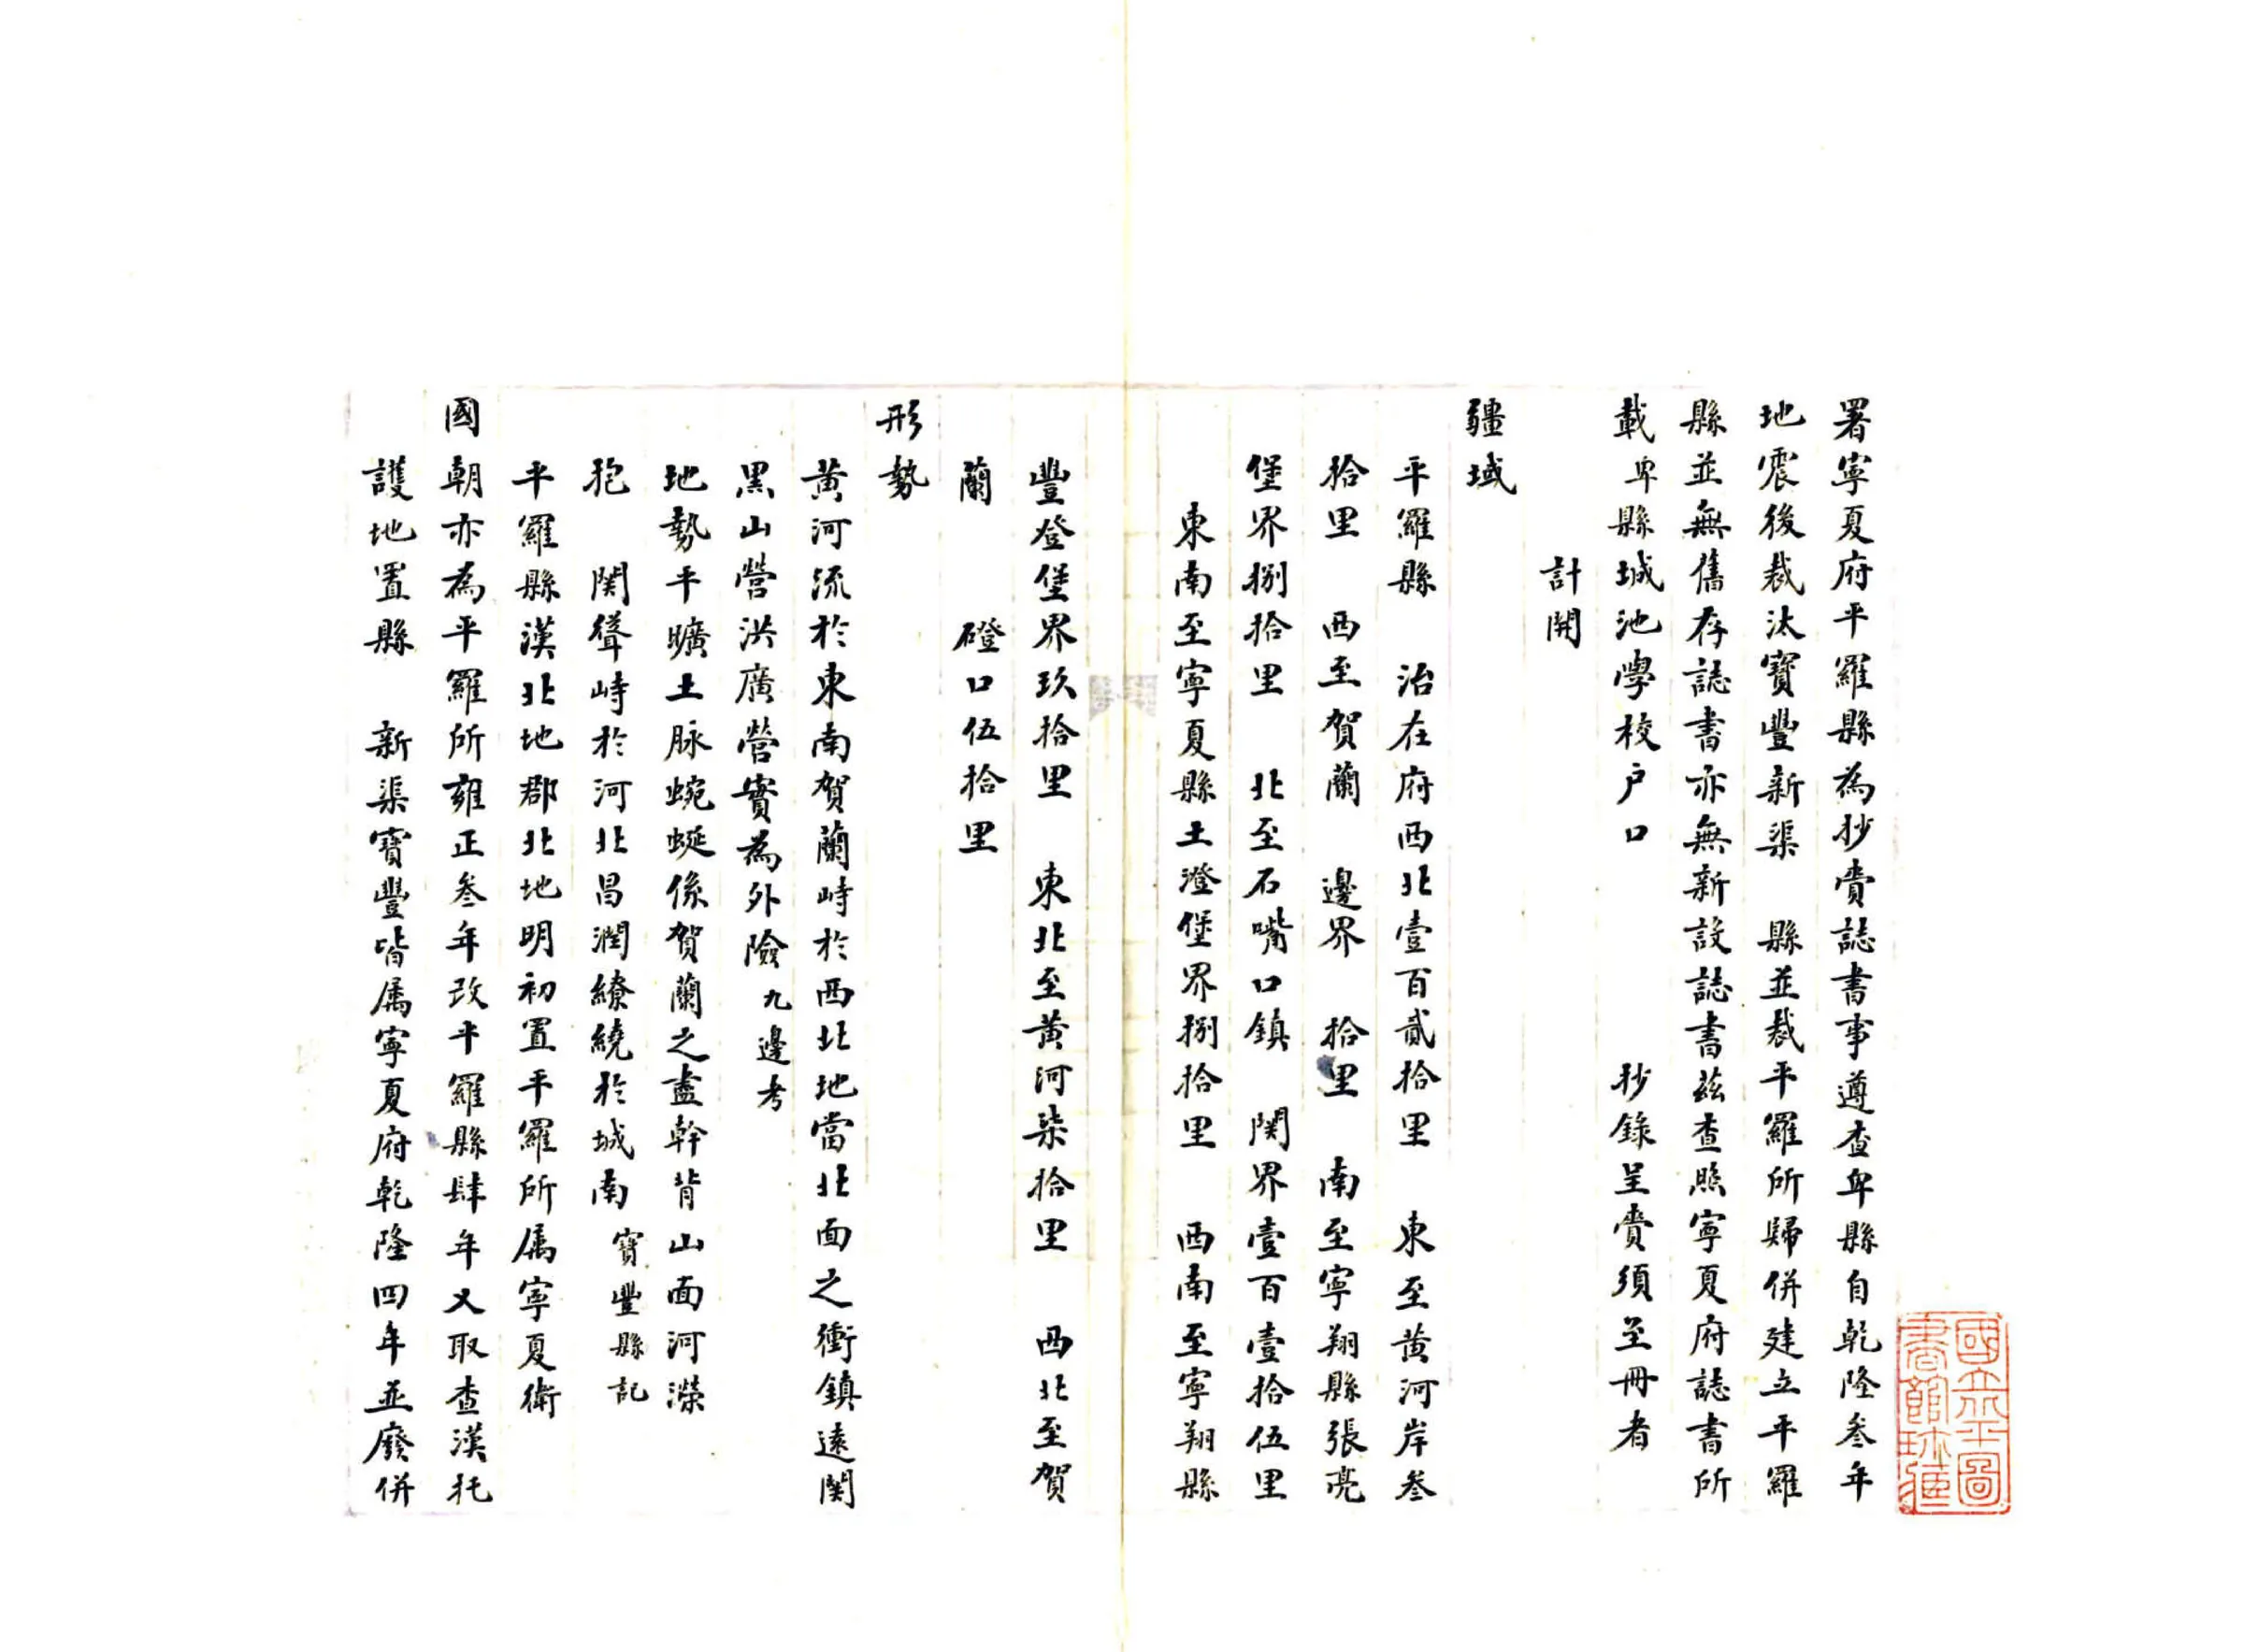 署寧夏府平羅縣為抄賫誌書事遵查卑縣自乾隆叁年
地震後裁汰寶豐新渠　縣並裁平羅所歸併建立平羅
縣並無舊存誌書亦無新設誌書茲查照寧夏府誌書所
載卑縣城池學校户口　抄錄呈賫須至冊者
計開
疆域
平羅縣　治在府西北壹百貳拾里　東至黃河岸叁
拾里　西至賀蘭　邊界　拾里　南至寧朔縣張亮
堡界捌拾里　北至石嘴口鎮　関界壹百壹拾伍里
東南至寧夏縣土澄堡界捌拾里　西南至寧朔縣
豐登堡界玖拾里　東北至黃河柒拾里　西北至賀
蘭　磴口伍拾里
形勢
黃河流於東南賀蘭峙於西北地當北面之衝鎮遠関
黑山營洪廣營實為外險九邊考
地勢平曠土脉蜿蜒係賀蘭之盡幹背山面河濚
抱　関聳峙於河北昌潤繚繞於城南寶豐縣記
平羅縣漢北地郡北地明初置平羅所属寧夏衛
國朝亦為平羅所雍正叁年改平羅縣肆年又取查漢托
護地置縣　新渠寶豐皆属寧夏府乾隆四年並廢併
國立北平圖書館珍藏